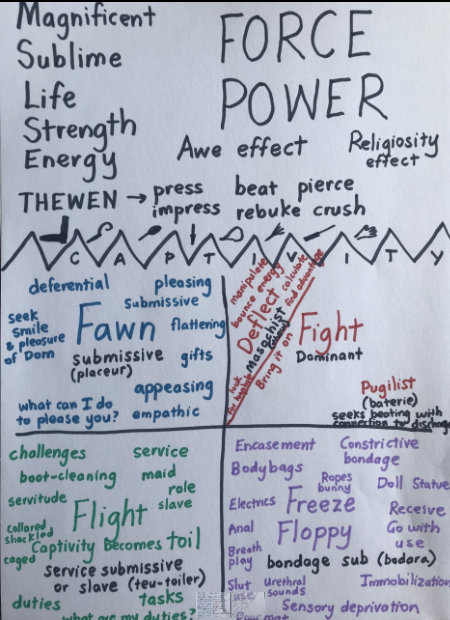 Magnificent
Sublime
Life
Strength
Energy
FORCE
POWER
Awe effect
Religiosity
effect
THEWEN → press beat pierce
impress rebuke crush
CAPTIVITY
deferential
pleasing
submissive
seek
smile
& pleasure
of Dom
Fawn
flattering
submissive
(placeur)
gifts
appeasing
what can I do
to please you?
empathic
manipulate
bounce energy
Deflect
calculate
find advantage
masochist
Bring it on
Fight
Dominant
Pugilist
(baterie)
seeks beating with
connection to discharge
challenges
service
boot-cleaning
maid
servitude
role
slave
Flight
Collared
shackled
caged
Captivity becomes toil
service submissive
or slave (teu-toiler)
duties
tasks
what are my duties?
Encasement
Constrictive
bondage
Bodybags
Ropes
bunny
Doll Statue
Electrics
Freeze
Receive
Anal
Floppy
Go with
use
Breath
play
bondage sub (bodara)
Slut
use
Urethral
sounds
Immobilization
Sensory deprivation